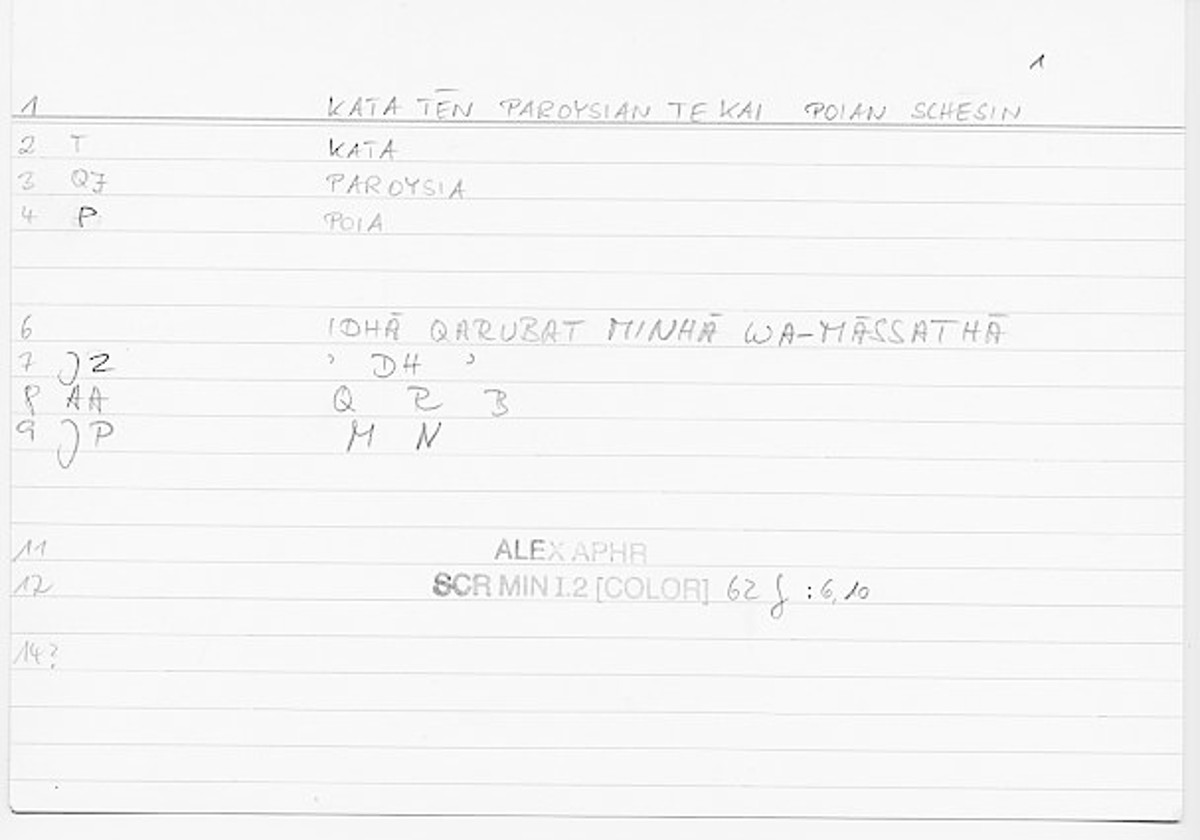 1
1 KATA TĒN PAROYSIAN TE KAI POIAN SCHESIN
2 T KATA
3 QJ PAROYSIA
4 P POIA
6 IDHĀ QARUBAT MINHĀ WA-MĀSSATHĀ
7 J2 ʾ DH ʾ
8 AA Q R B
9 JP M N
11 ALEX APHR
12 SCR MIN I.2 [COLOR] 62 f :6,10
14?